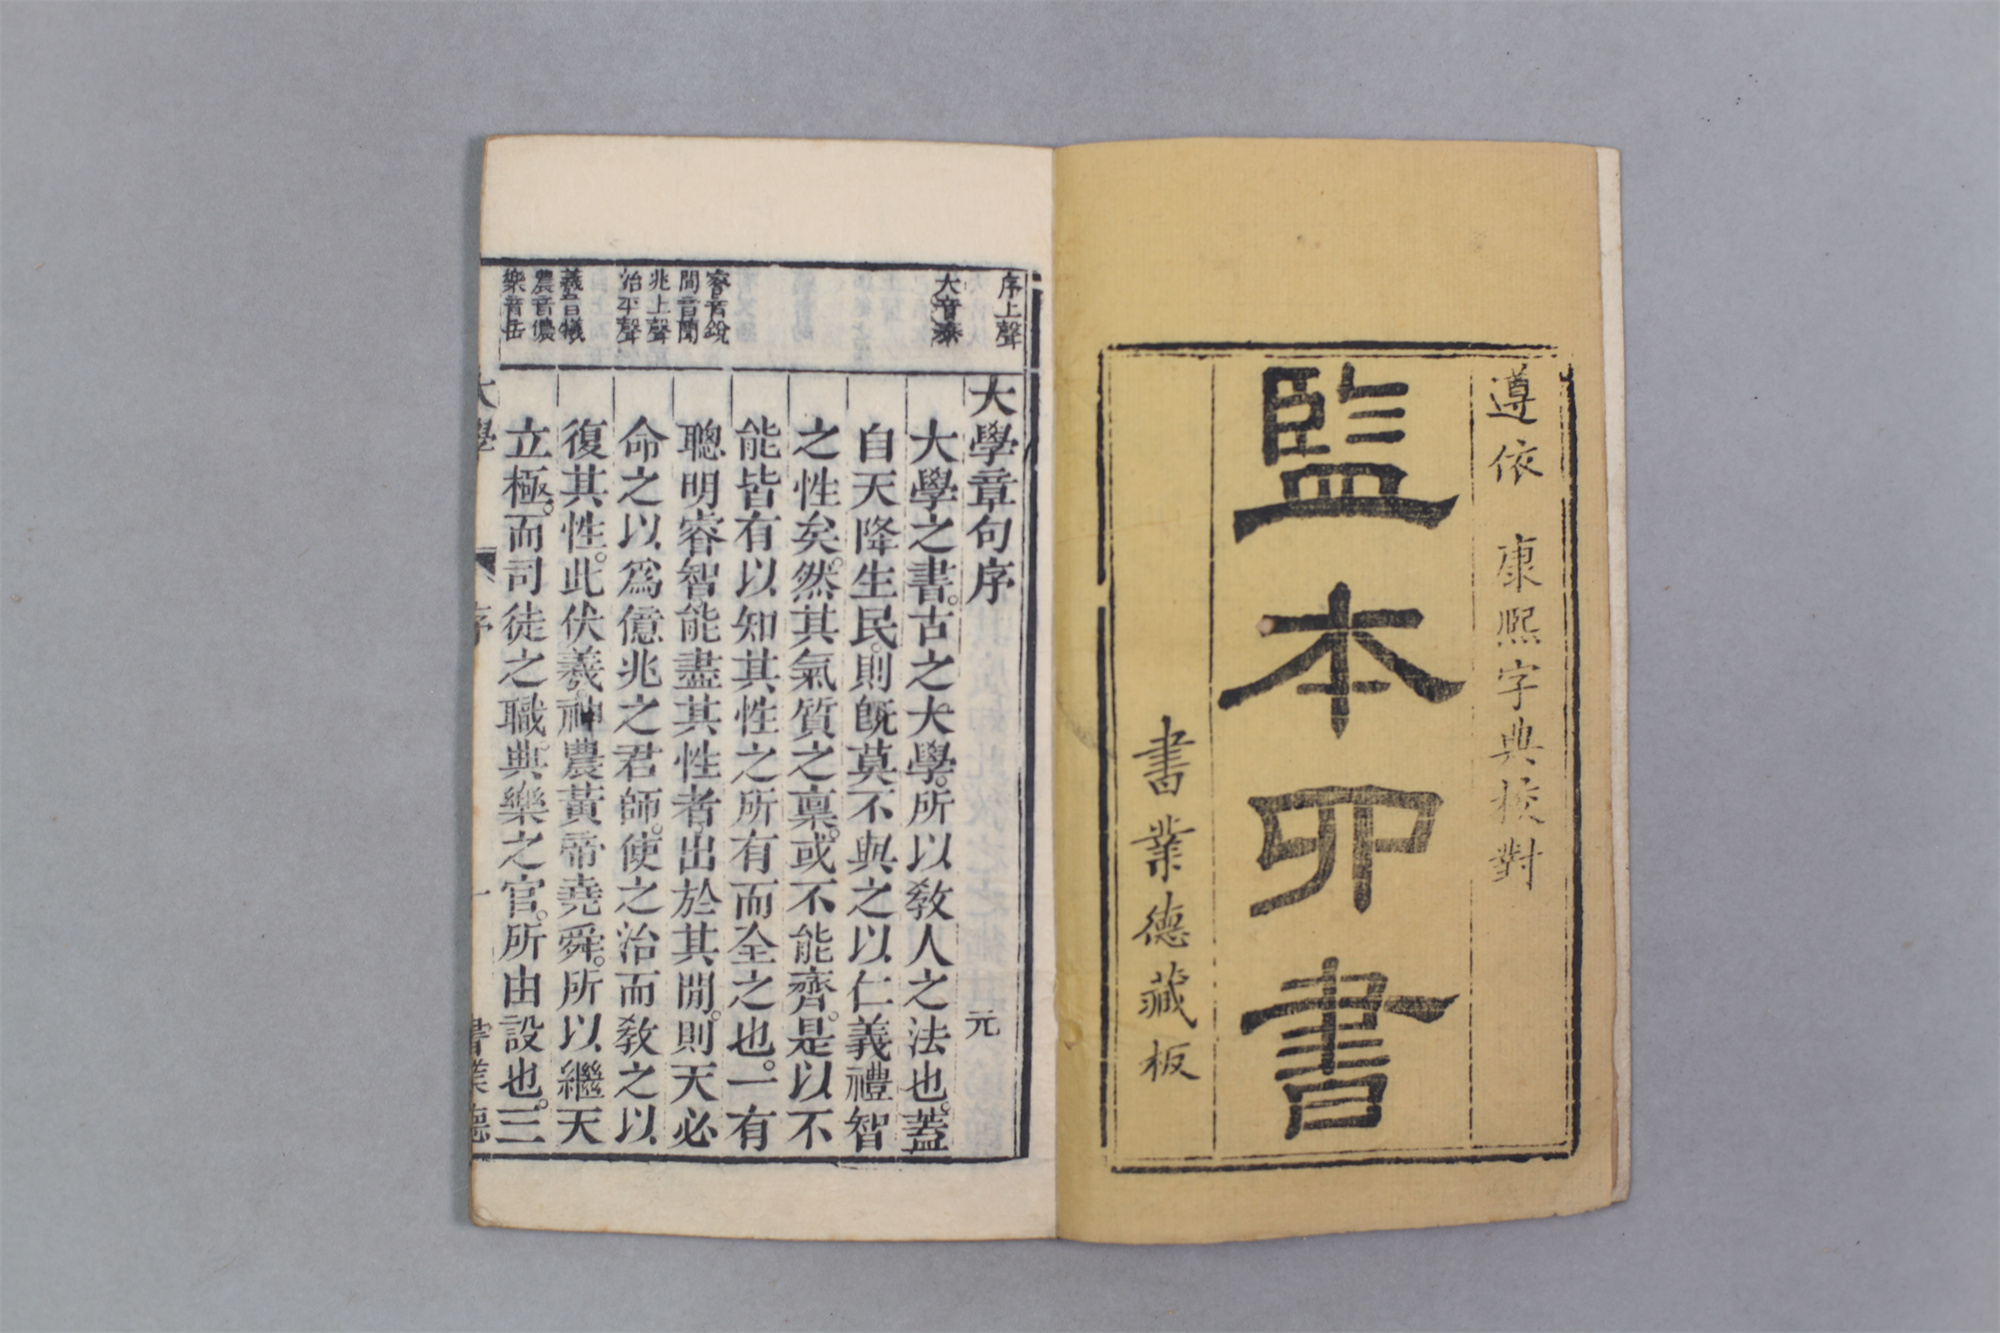 遵依 康熙字典挍對
監本四書
書業德藏板
序上聲
大音泰
睿音銳
間音閒
兆上聲
治平聲
羲音犧
農音儂
樂音岳
大學章句序 元
大學之書。古之大學。所以敎人之法也。蓋
自天降生民。則旣莫不與之以仁義禮智
之性矣。然其氣質之稟。或不能齊。是以不
能皆有以知其性之所有而全之也。一有
聰明睿智能盡其性者出於其閒。則天必
命之以爲億兆之君師。使之治而敎之以
復其性。此伏羲神農黃帝堯舜。所以繼天
立極。而司徒之職典樂之官。所由設也。三
大學 序 一 書業德